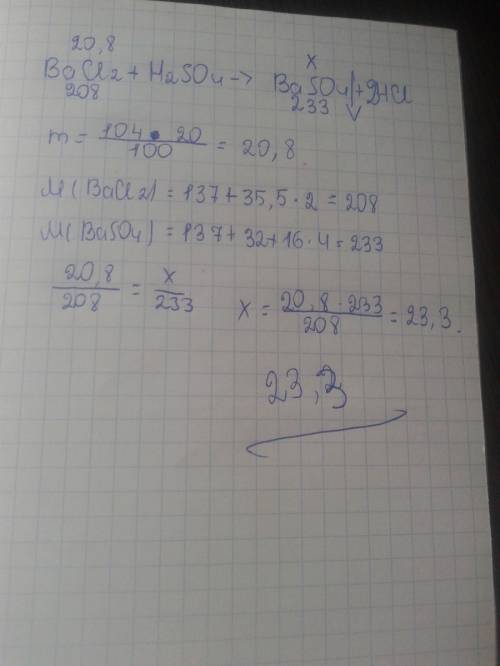 20,8 x
BaCl2 + H2SO4 -> BaSO4↓ + 2HCl
208 233
m = 104 • 20 / 100 = 20,8
M(BaCl2) = 137 + 35,5 · 2 = 208
M(BaSO4) = 137 + 32 + 16 · 4 = 233
20,8 / 208 = x / 233 x = 20,8 · 233 / 208 = 23,3.
23,3